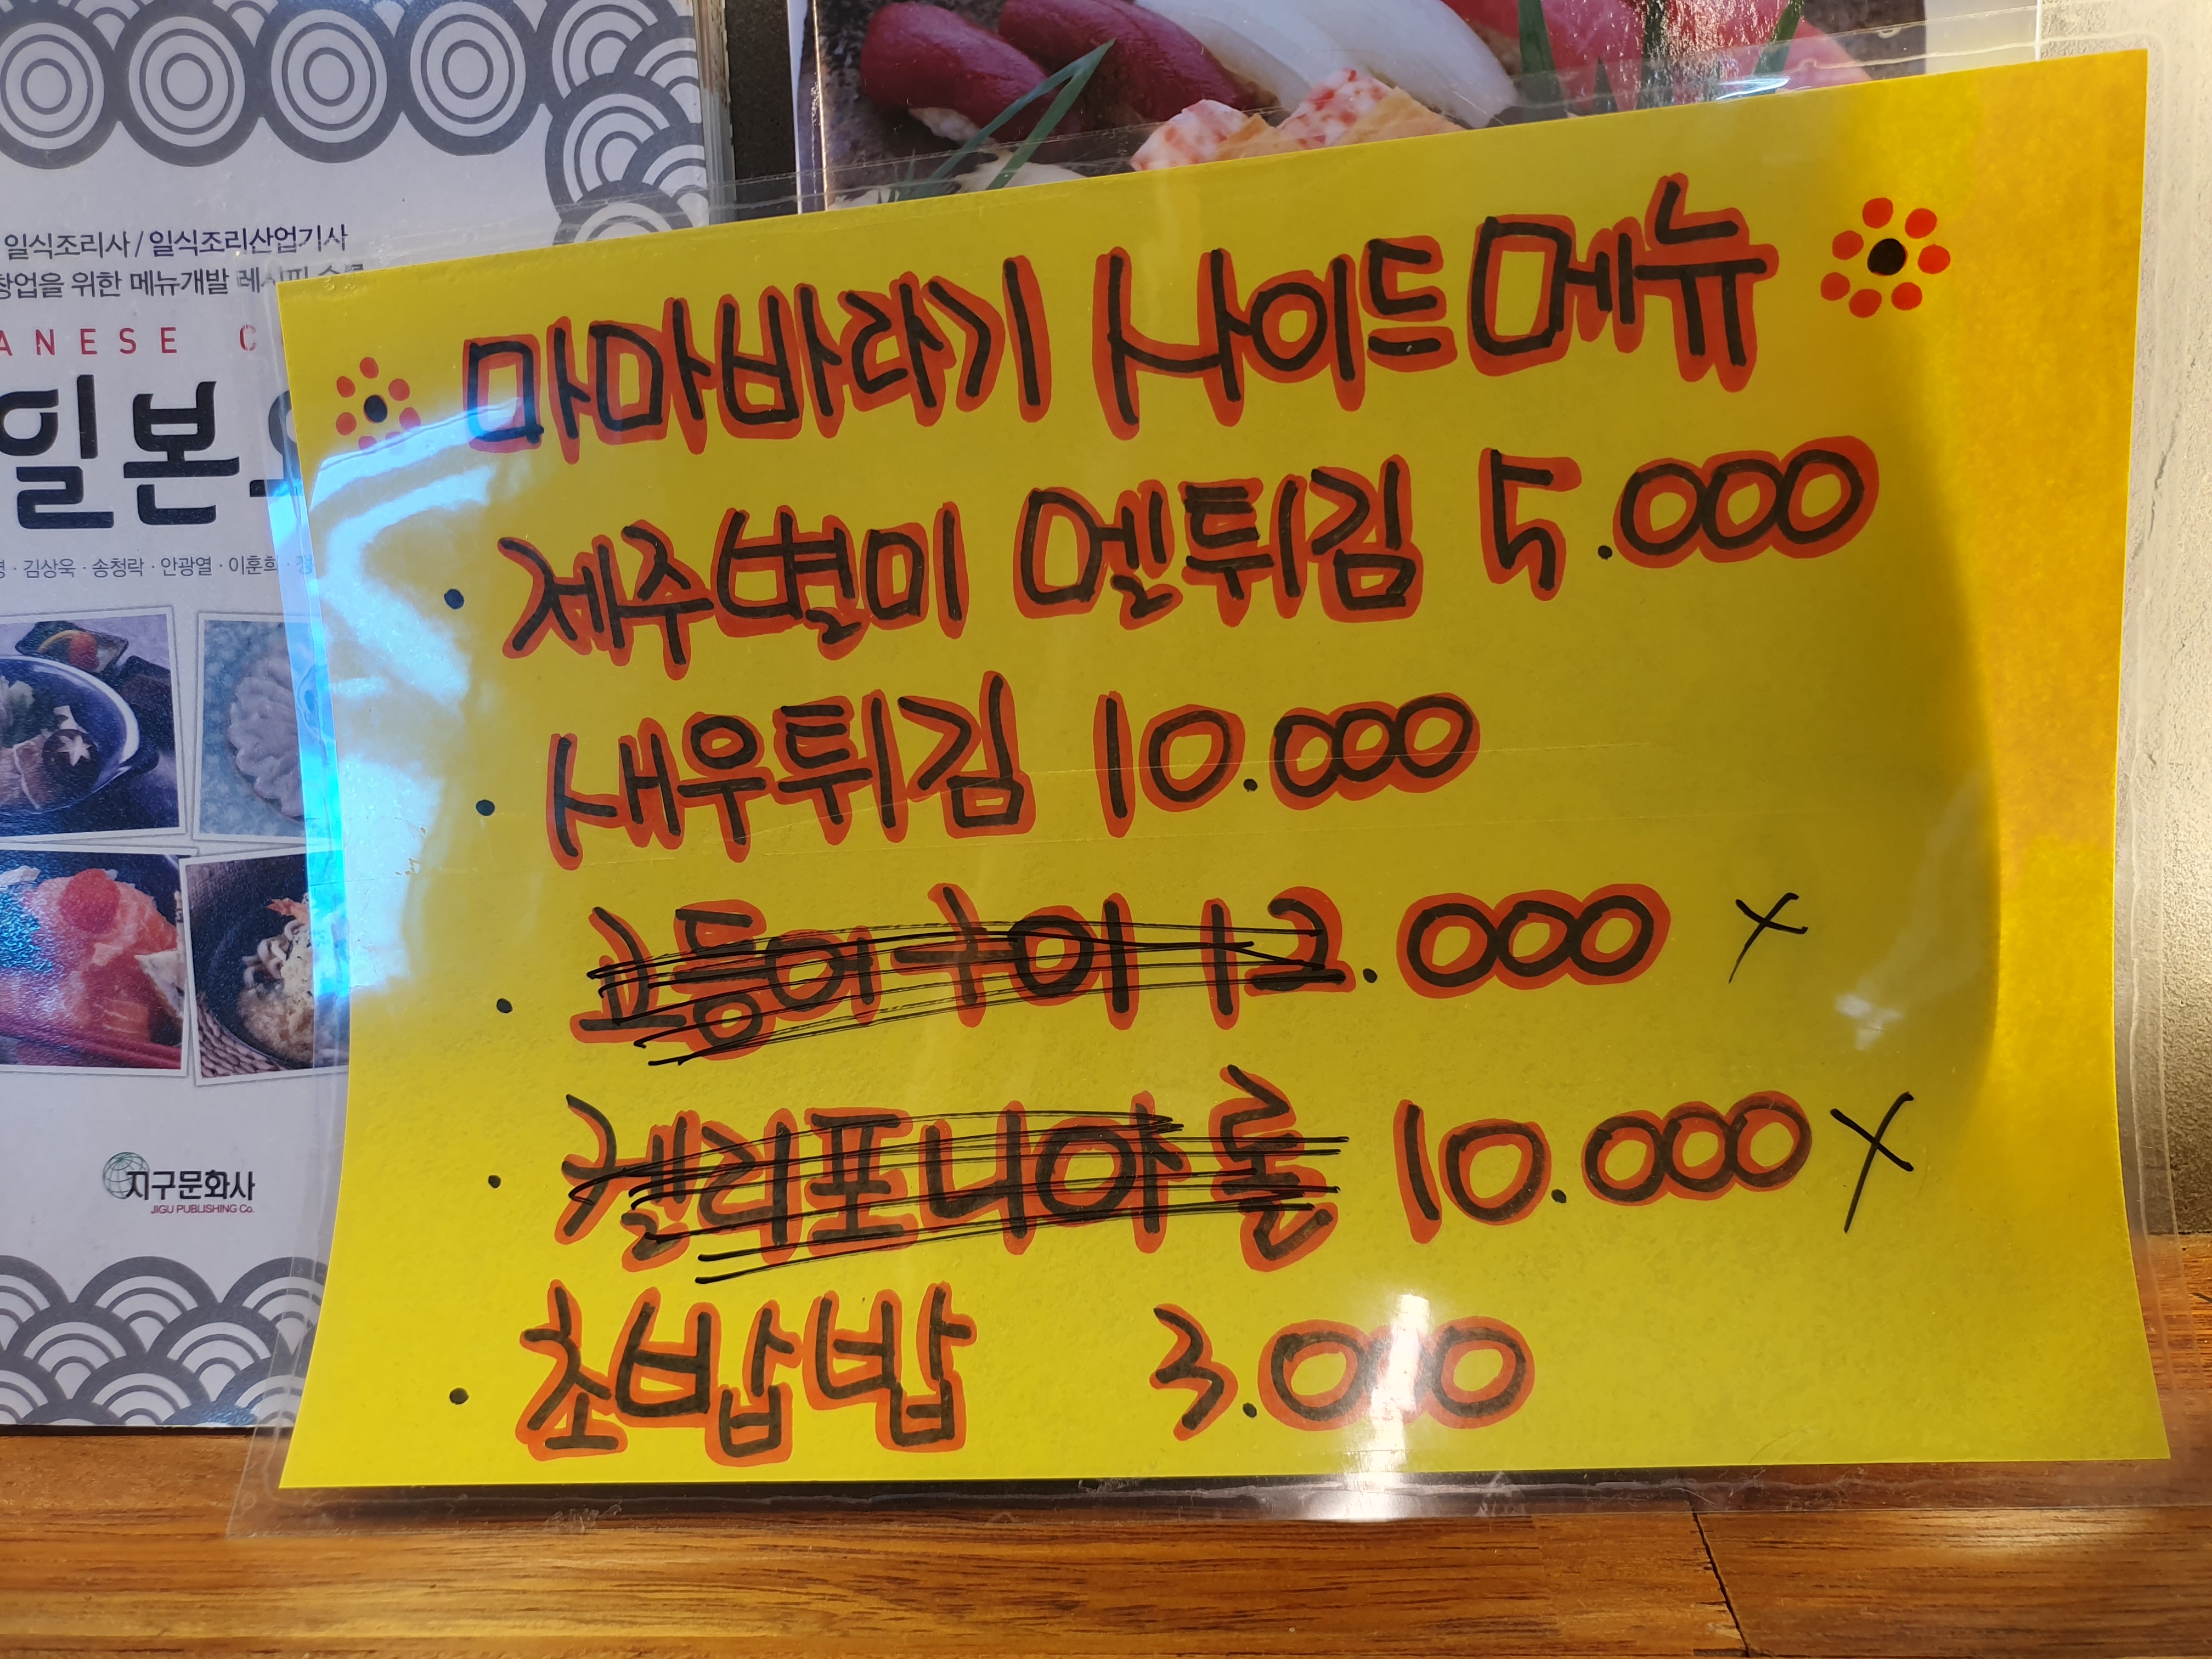 일식조리사 / 일식조리산업기사
창업을 위한 메뉴개발 레시피
ANESE C
일본
김상욱 · 송청락 · 안광열 · 이훈희 ·
지구문화사
JIGU PUBLISHING Co.
마마바라기 사이드메뉴
· 제주별미 멜튀김 5.000
· 새우튀김 10.000
· 고등어구이 12.000 X
· 켈리포니아롤 10.000 X
· 초밥밥 3.000